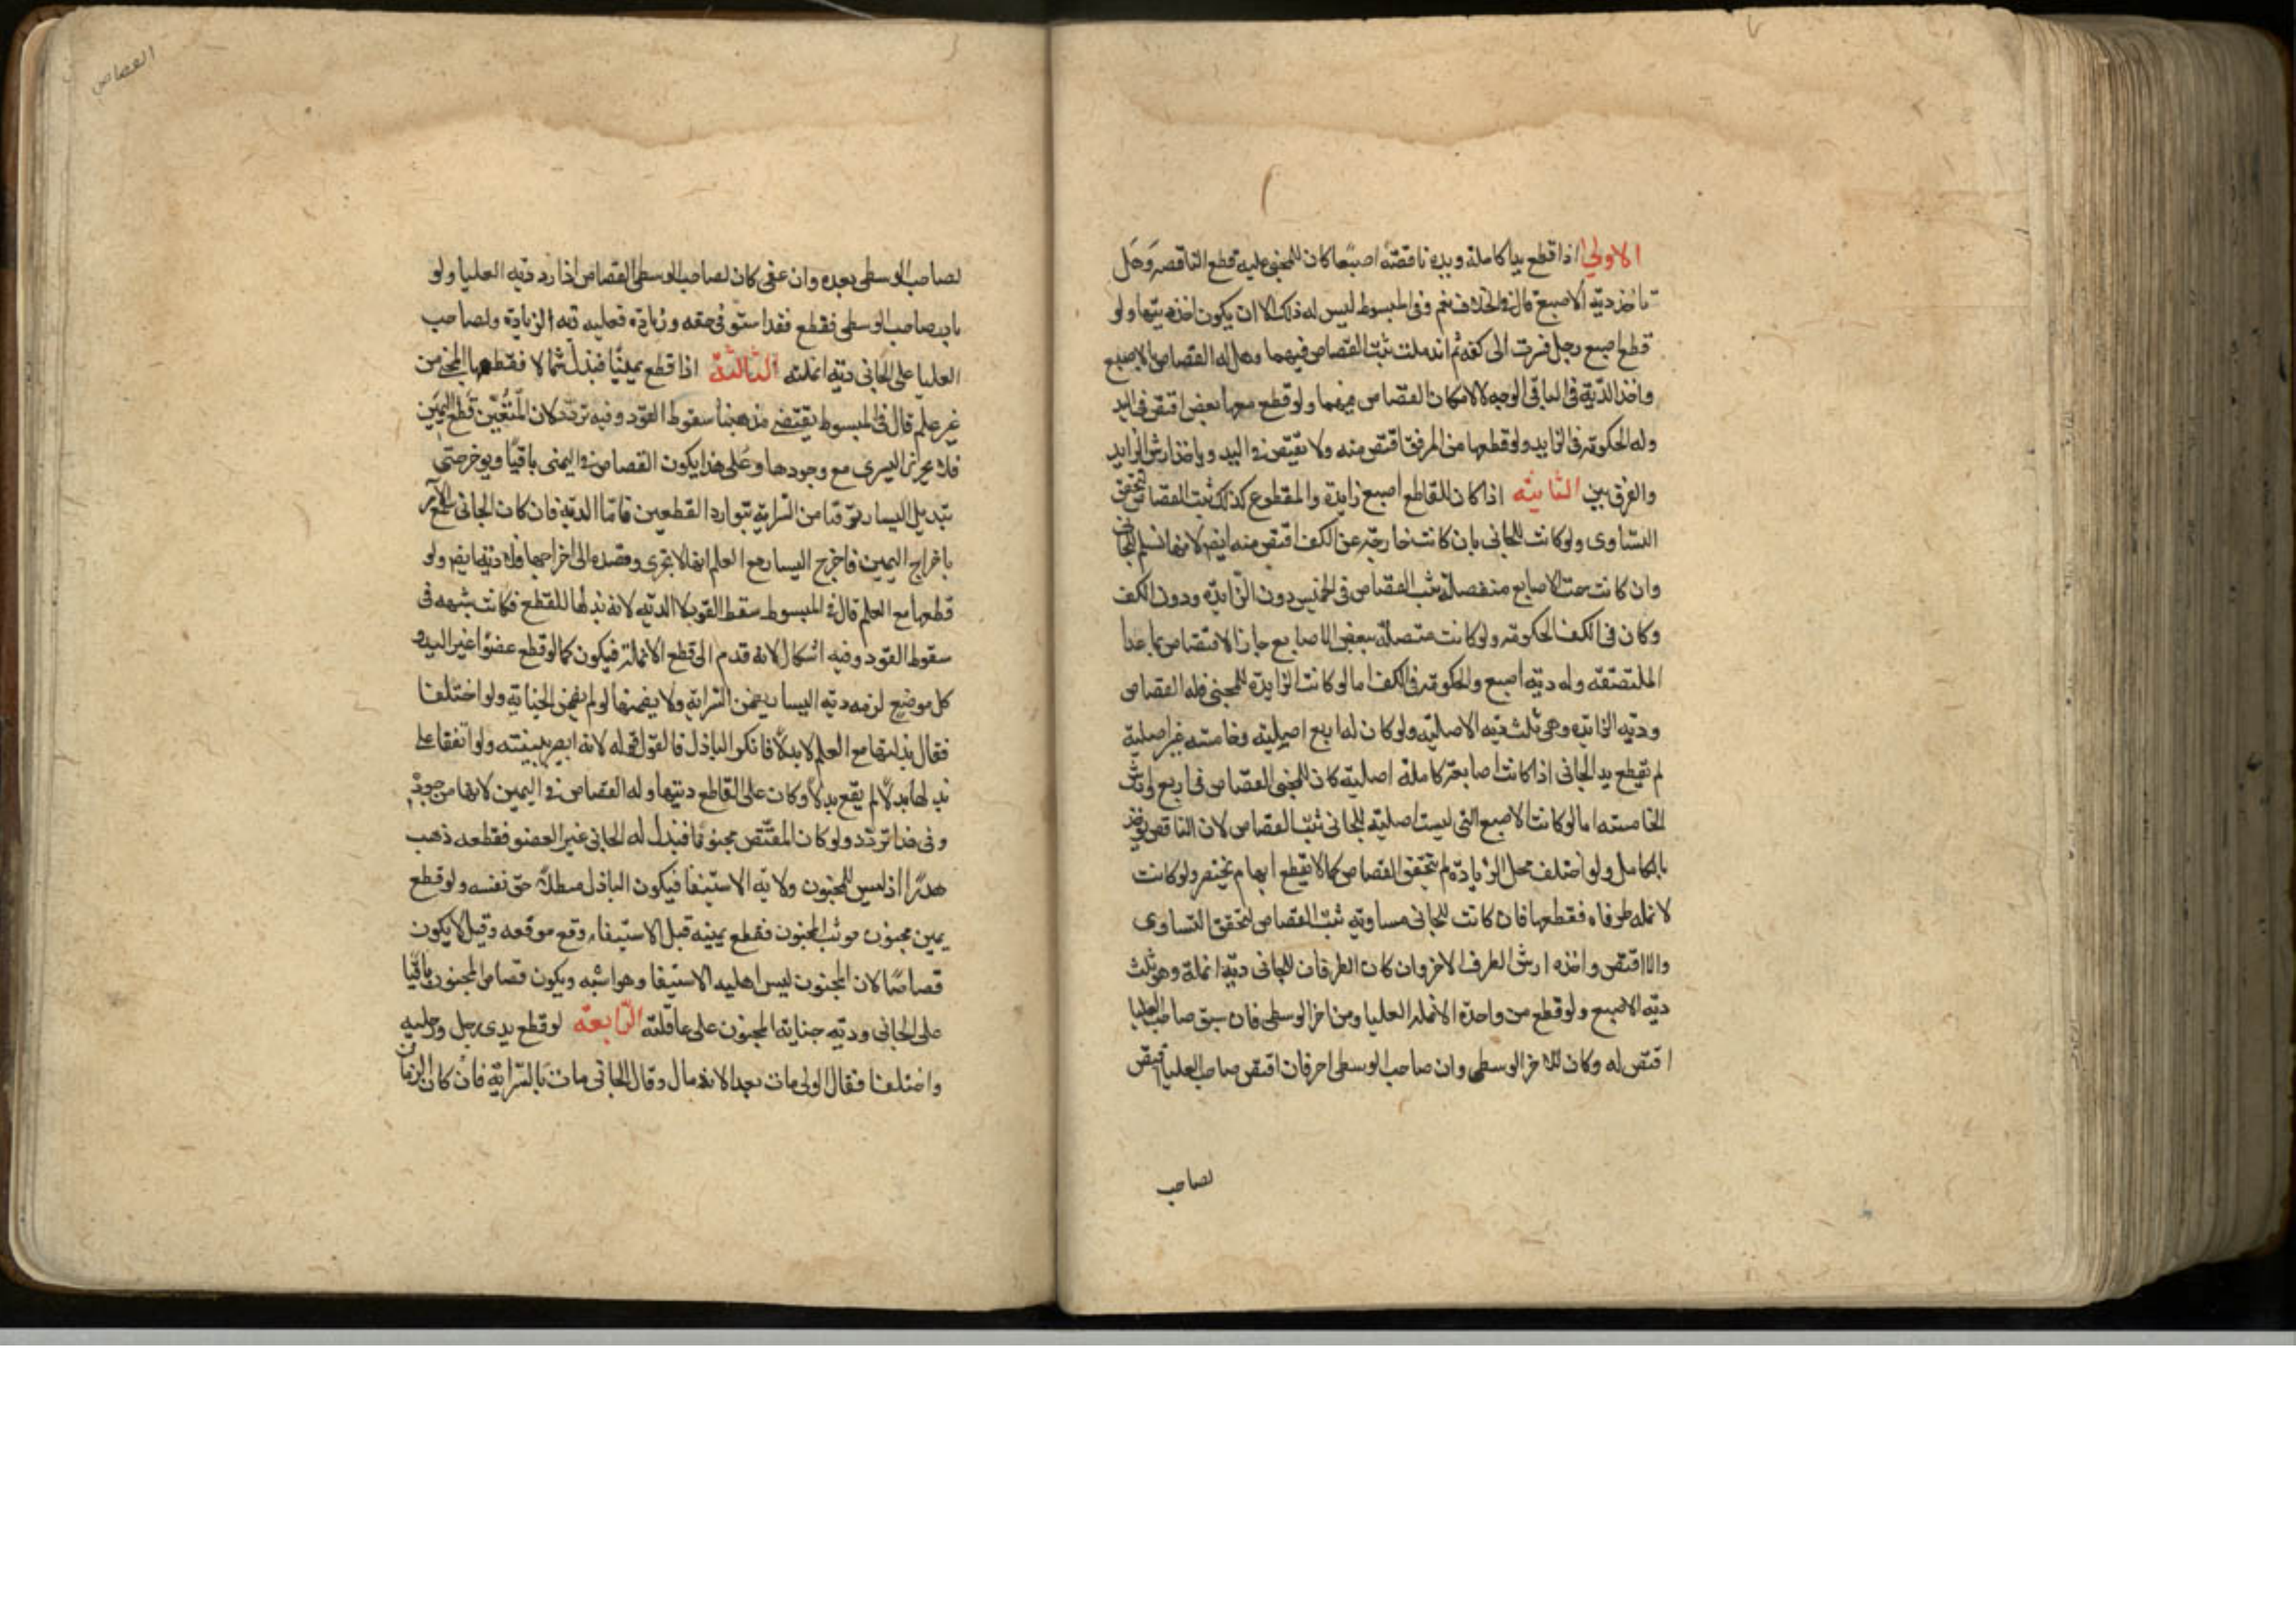 الاولى اذا قطع يدا كاملة ويده ناقصة اصبعا كان للمجنى عليه قطع الناقصة وهل
تاخذ دية الاصبع قال فى الخلاف نعم وفى المبسوط ليس له ذلك الا ان يكون اخذ ديتها ولو
قطع اصبع رجل فسرت الى كفه ثم اندملت ثبت القصاص فيهما وهل له القصاص فى الاصبع
واخذ الدية فى الباقى الوجه لا لامكان القصاص فيهما ولو قطع معها بعض اقتص فى اليد
وله الحكومة فى الزايد ولو قطعها من المرفق اقتص منه ولا يقتص فى اليد وياخذ ارش الزايد
والفرق بين الثانية اذا كان للقاطع اصبع زايدة وللمقطوع كذلك ثبت القصاص لتحقق
التساوى ولو كانت للجانى بان كانت خارجة عن الكف اقتص منه ايضا لانها تسلم للجانى
وان كانت سمت الاصابع منفصلة ثبت القصاص فى الخمس دون الزايدة ودون الكف
وكان فى الكف الحكومة ولو كانت متصلة ببعض الاصابع جاز الاقتصاص فيما عدا
الملتصقة وله دية اصبع والحكومة فى الكف اما لو كانت الزايدة للمجنى فله القصاص
ودية الزايدة وهى ثلث دية الاصلية ولو كان له اربع اصلية وخامسة غير اصلية
لم تقطع يد الجانى اذا كانت اصابعه كاملة اصلية كان للمجنى القصاص فى اربع وارش
الخامسة اما لو كانت الاصبع التى ليست اصلية للجانى ثبت القصاص لان الناقص يوخذ
بالكامل ولو اختلف محل الزيادة لم يتحقق القصاص كما لا يقطع ابهام بخنصر ولو كانت
لانملة طرفان فقطعها فان كانت للجانى مساوية ثبت القصاص لتحقق التساوى
والا اقتص واخذ ارش الطرف الاخر وان كان الطرفان للجانى دية انملة وهو ثلث
دية الاصبع ولو قطع من واحدة الانملة العليا ومن اخر الوسطى فان سبق صاحب العليا
اقتص له وكان للاخر الوسطى وان صاحب الوسطى اخر فان اقتص صاحب العليا اقتص
لصاحب
القصاص
لصاحب الوسطى بعده وان عفى كان لصاحب الوسطى القصاص اذا رد دية العليا ولو
بادر صاحب الوسطى فقطع فقد استوفى حقه وزيادة فعليه دية الزيادة ولصاحب
العليا على الجانى دية انملته الثالثة اذا قطع يمينا فبذل شمالا فقطعها المجنى من
غير علم قال فى المبسوط يقتضى مذهبنا سقوط القود وفيه تردد لان المتعين قطع اليمين
فلا يجزى اليسرى مع وجودها وعلى هذا يكون القصاص فى اليمنى باقيا ويوخر حتى
يندمل اليسار توقيا من السراية بتوارد القطعين فاما الدية فان كان الجانى سمع الامر
باخراج اليمين فاخرج اليسار مع العلم انها لا تجزى وقصده الى اخراجها فلا دية ايضا ولو
قطعها مع العلم قال فى المبسوط سقط القود لا الدية لانه بذلها للقطع فكانت شبهة فى
سقوط القود وفيه اشكال لانه قدم الى قطع الانملة فيكون كما لو قطع عضوا غير اليد و
كل موضع لزمه دية اليسار يضمن السراية ولا يضمنها لو لم يضمن الجناية ولو اختلفا
فقال بذلتها مع العلم لا بدلا فانكر الباذل فالقول قوله لانه ابصر بنيته ولو اتفقا على
بذلها بدلا لم يقع بدلا وكان على القاطع ديتها وله القصاص فى اليمين لانها موجودة
وفى هذا تردد ولو كان المقتص مجنونا فبذل له الجانى غير العضو فقطعه ذهب
هدرا اذ ليس للمجنون ولاية الاستيفا فيكون الباذل مبطلا حق نفسه ولو قطع
يمين مجنون فوثب المجنون فقطع يمينه قبل الاستيفاء وقع موقعه وقيل لا يكون
قصاصا لان المجنون ليس اهلية الاستيفا وهو اشبه ويكون قصاص المجنون باقيا
على الجانى ودية جناية المجنون على عاقلته الرابعة لو قطع يدى رجل ورجليه
واختلفا فقال الولى مات بعد الاندمال وقال الجانى مات بالسراية فان كان الزمان